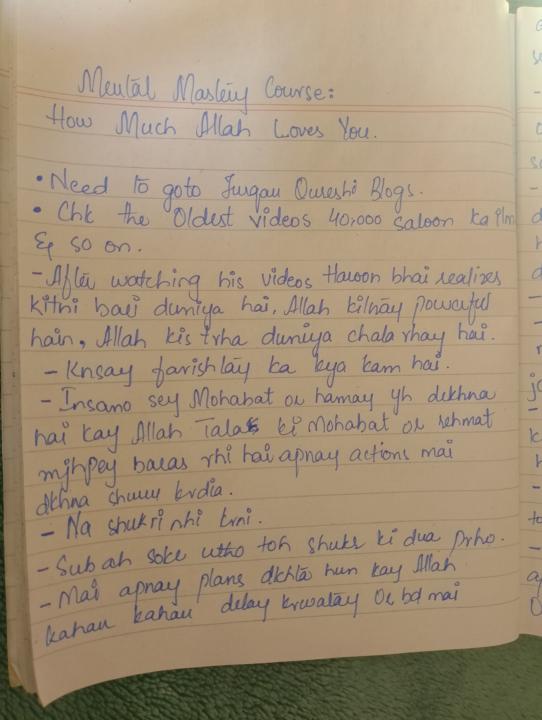 Mental Mastery Course:
How Much Allah Loves You.
• Need to goto Furqan Qureshi Blogs.
• Chk the Oldest videos 40,000 saloon ka ilm
& so on.
- After watching his videos Haroon bhai realizes
kitni bari duniya hai, Allah kitnay powerful
hain, Allah kis trha duniya chala rhay hai.
- Knsay farishtay ka kya kam hai.
- Insano sey Mohabat or hamay yh dekhna
hai kay Allah Talas ki Mohabat or rehmat
mjhpey baras rhi hai apnay actions mai
dkhna shuru krdia.
- Na shukri nhi krni.
- Subah soke utho toh shukr ki dua prho.
- Mai apnay plans dkhta hun kay Allah
kahan kahan delay krwatay Or bd mai